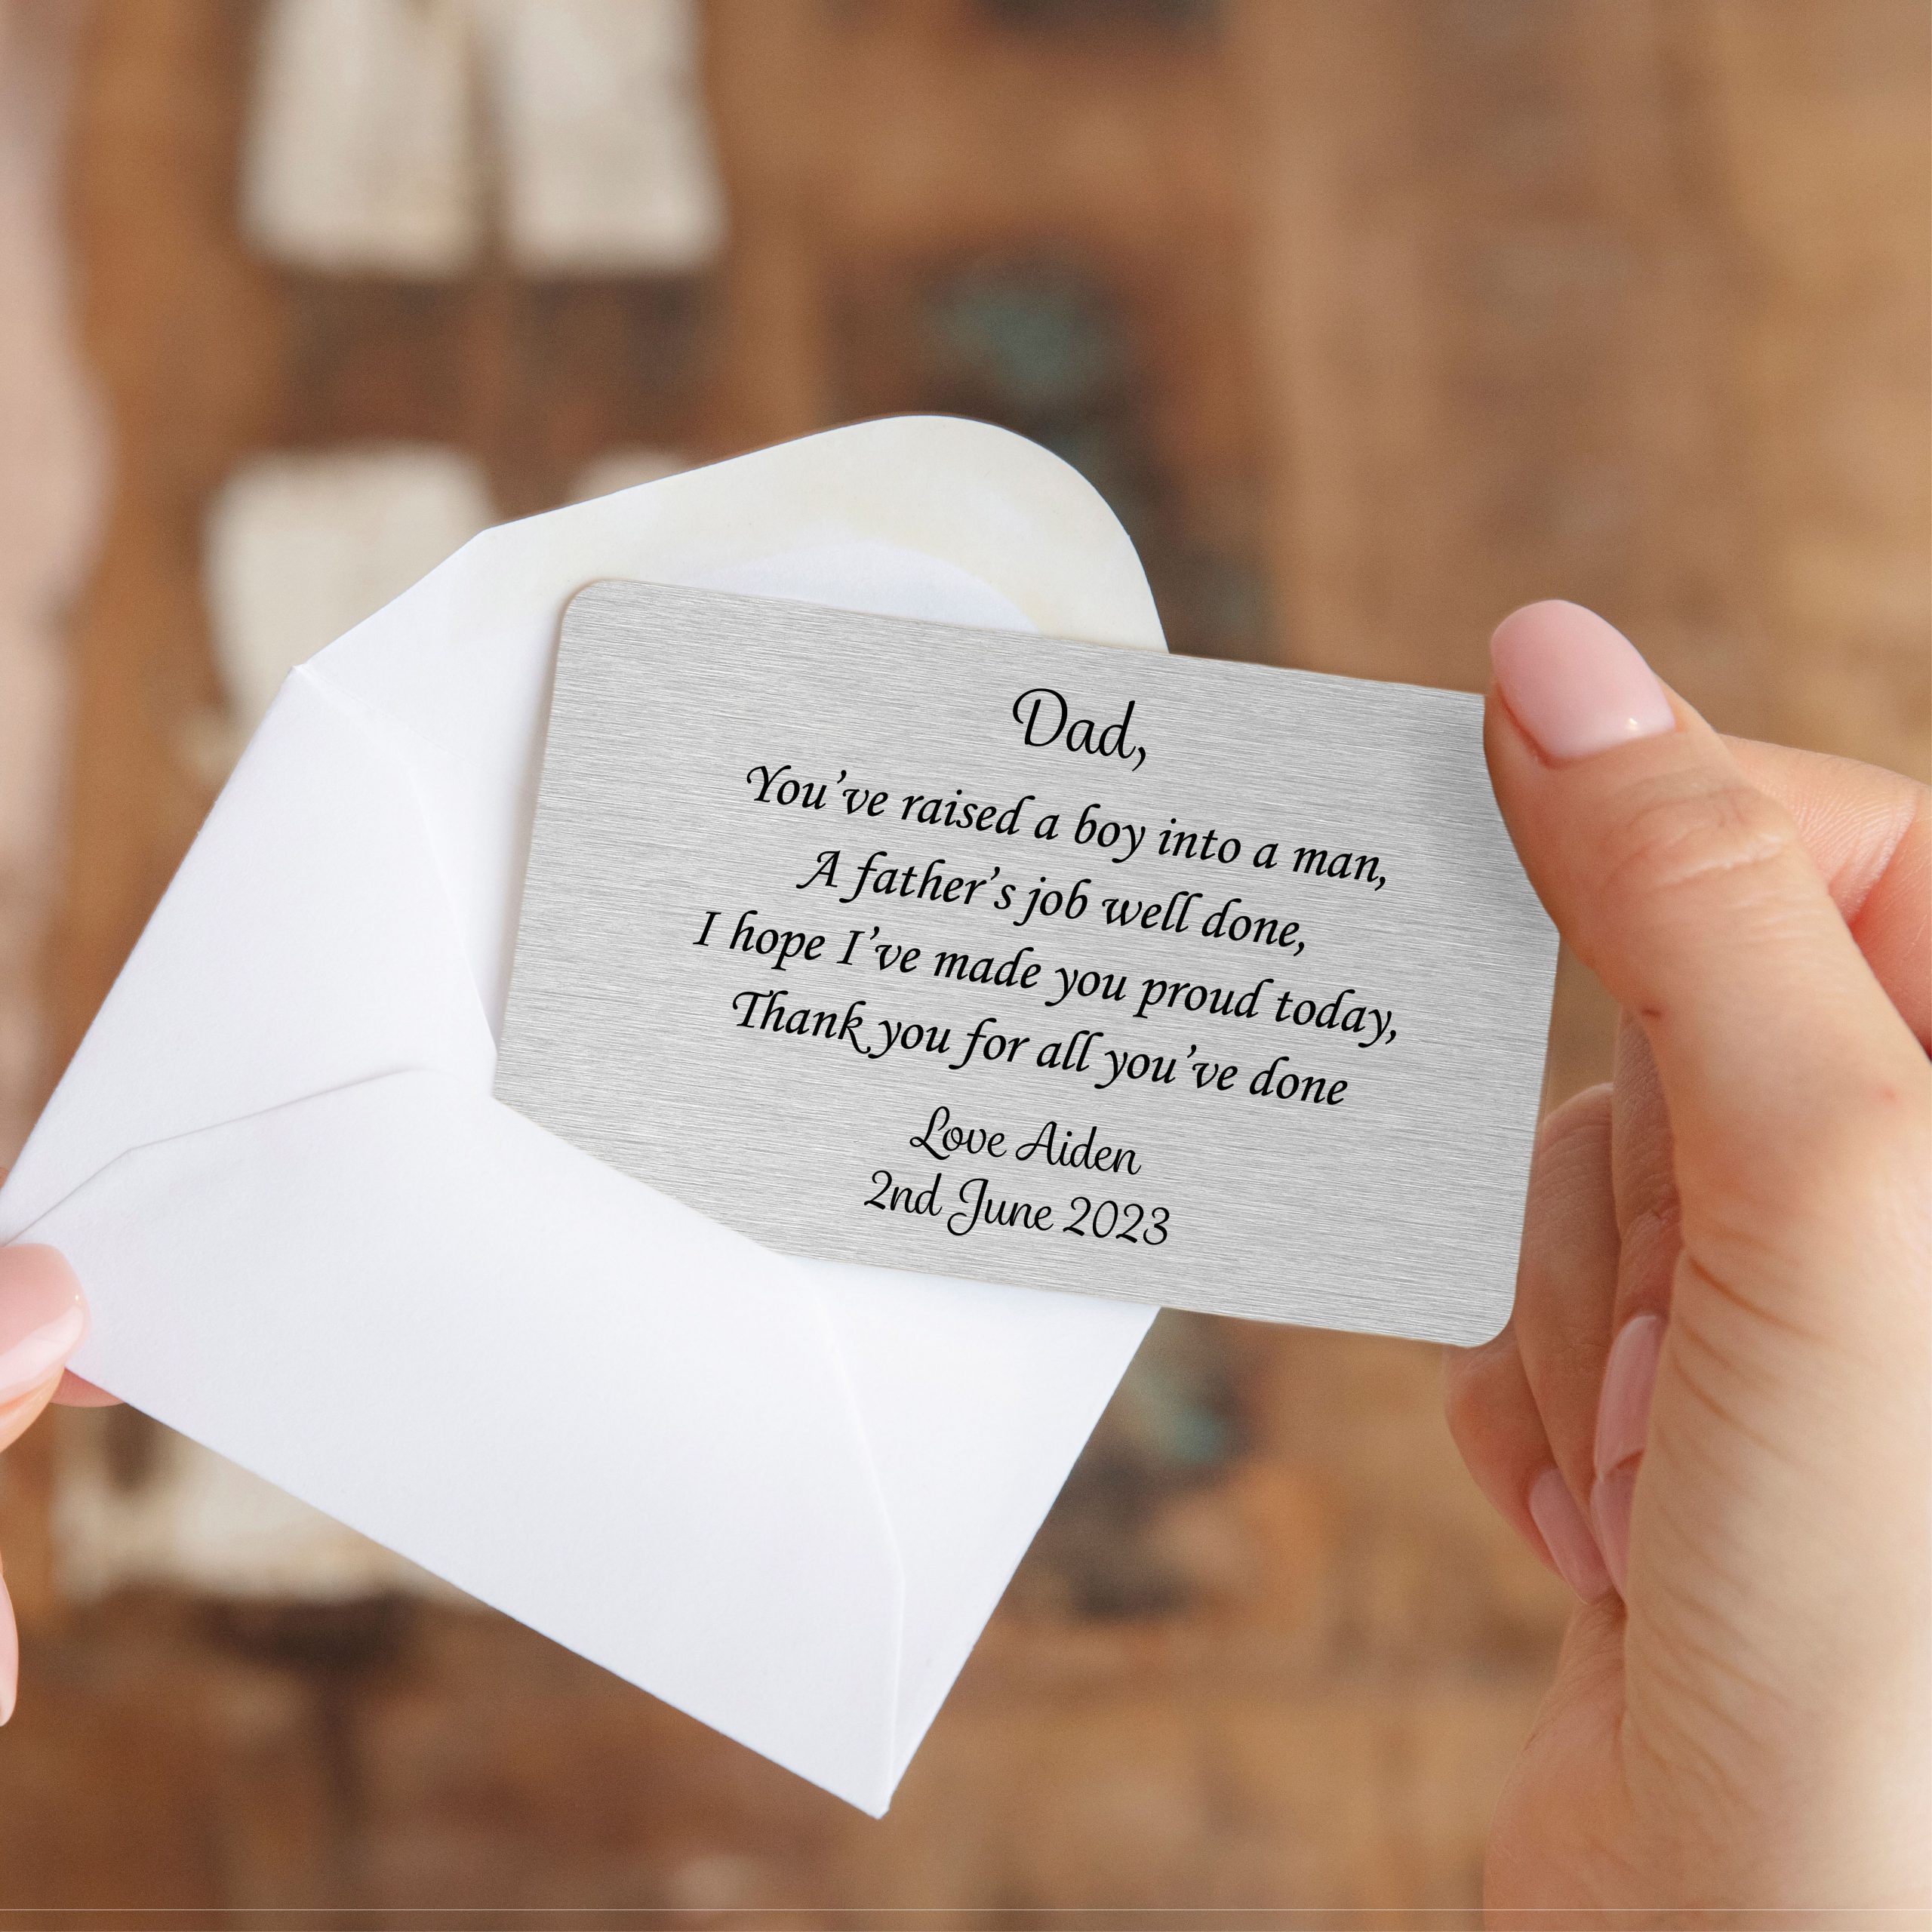 Dad,
You’ve raised a boy into a man,
A father’s job well done,
I hope I’ve made you proud today,
Thank you for all you’ve done
Love Aiden
2nd June 2023